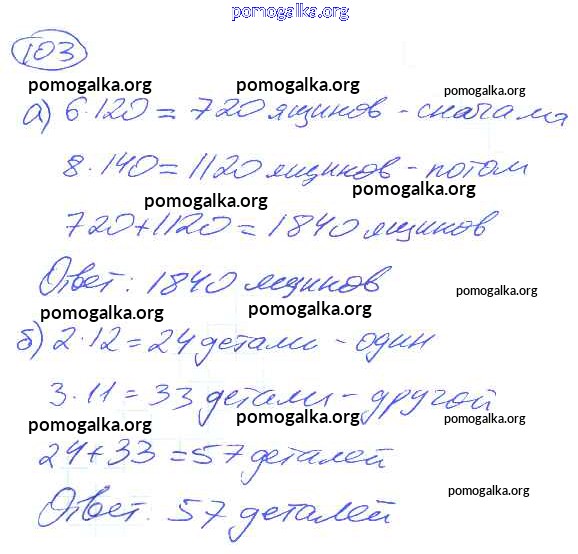 pomogalka.org
103
pomogalka.org pomogalka.org pomogalka.org
а) 6·120 = 720 ящиков - сначала
8·140 = 1120 ящиков - потом
pomogalka.org pomogalka.org
720+1120 = 1840 ящиков
Ответ: 1840 ящиков
pomogalka.org
pomogalka.org pomogalka.org
б) 2·12 = 24 детали - один
3·11 = 33 детали - другой
pomogalka.org pomogalka.org pomogalka.org
24+33 = 57 деталей
Ответ. 57 деталей
pomogalka.org